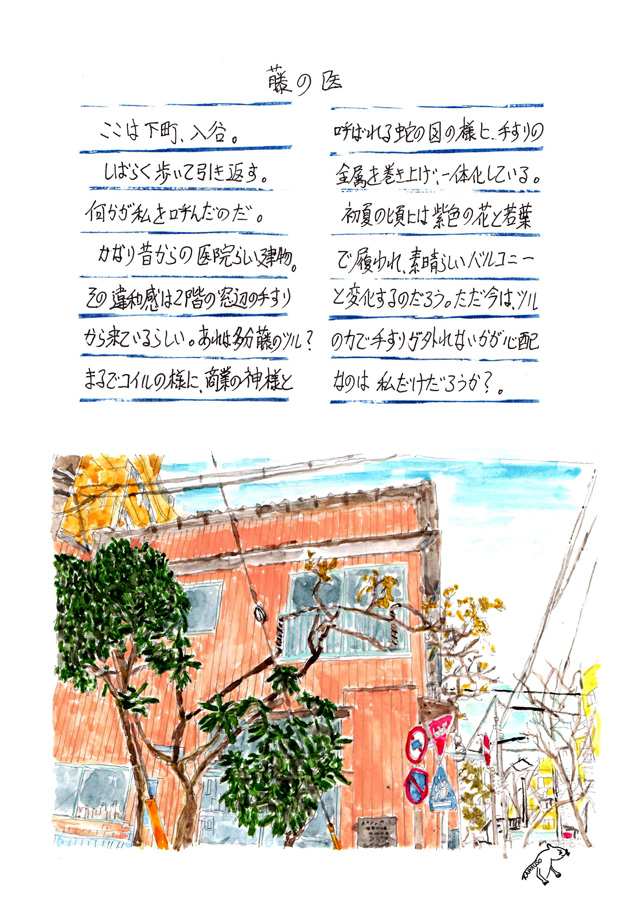 藤の医
ここは下町、入谷。
しばらく歩いて引き返す。
何かが私を呼んだのだ。
かなり昔からの医院らしい建物。
その違和感は2階の窓辺の手すり
から来ているらしい。あれは多分藤のツル?
まるでコイルの様に、商業の神様と
呼ばれる蛇の図の様に、手すりの
金属を巻き上げ、一体化している。
初夏の頃には紫色の花と若葉
で履われ、素晴らしいバルコニー
と変化するのだろう。ただ今は、ツル
の力で手すりが外れないかが心配
なのは 私だけだろうか?。